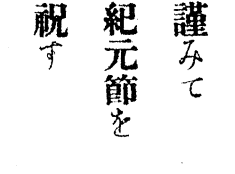 謹みて
紀元節を
祝す